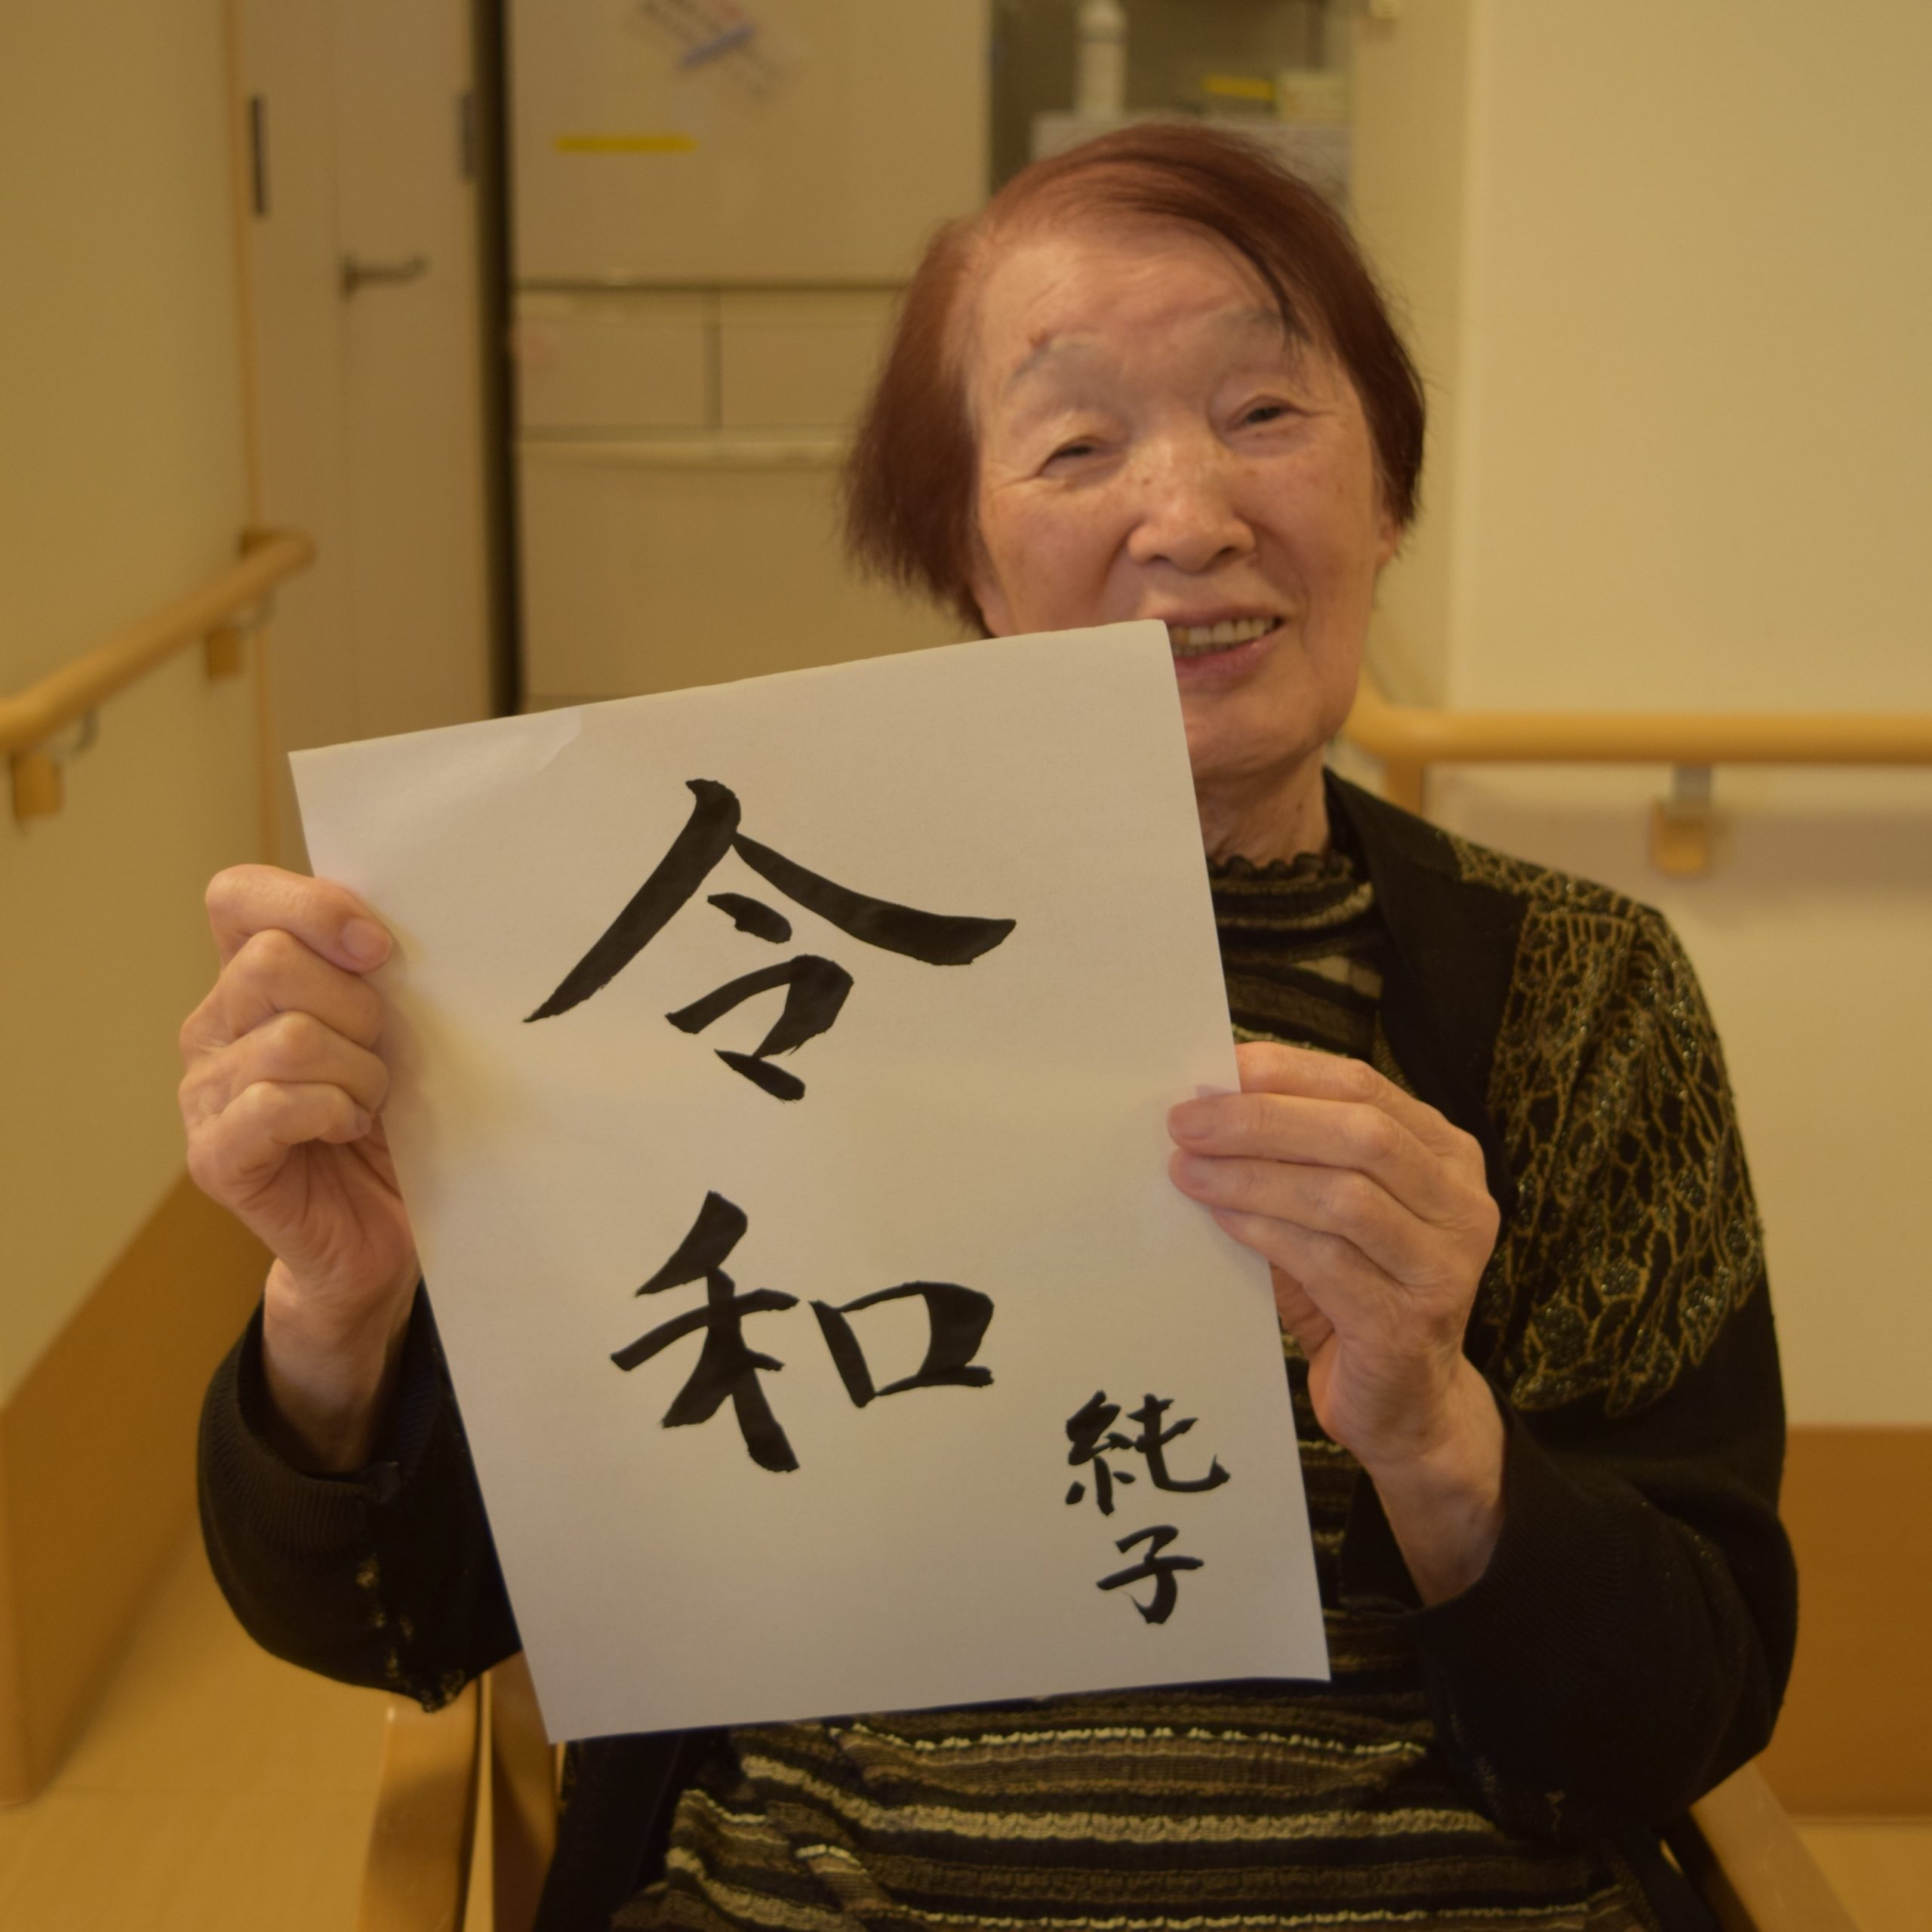 令和
純子